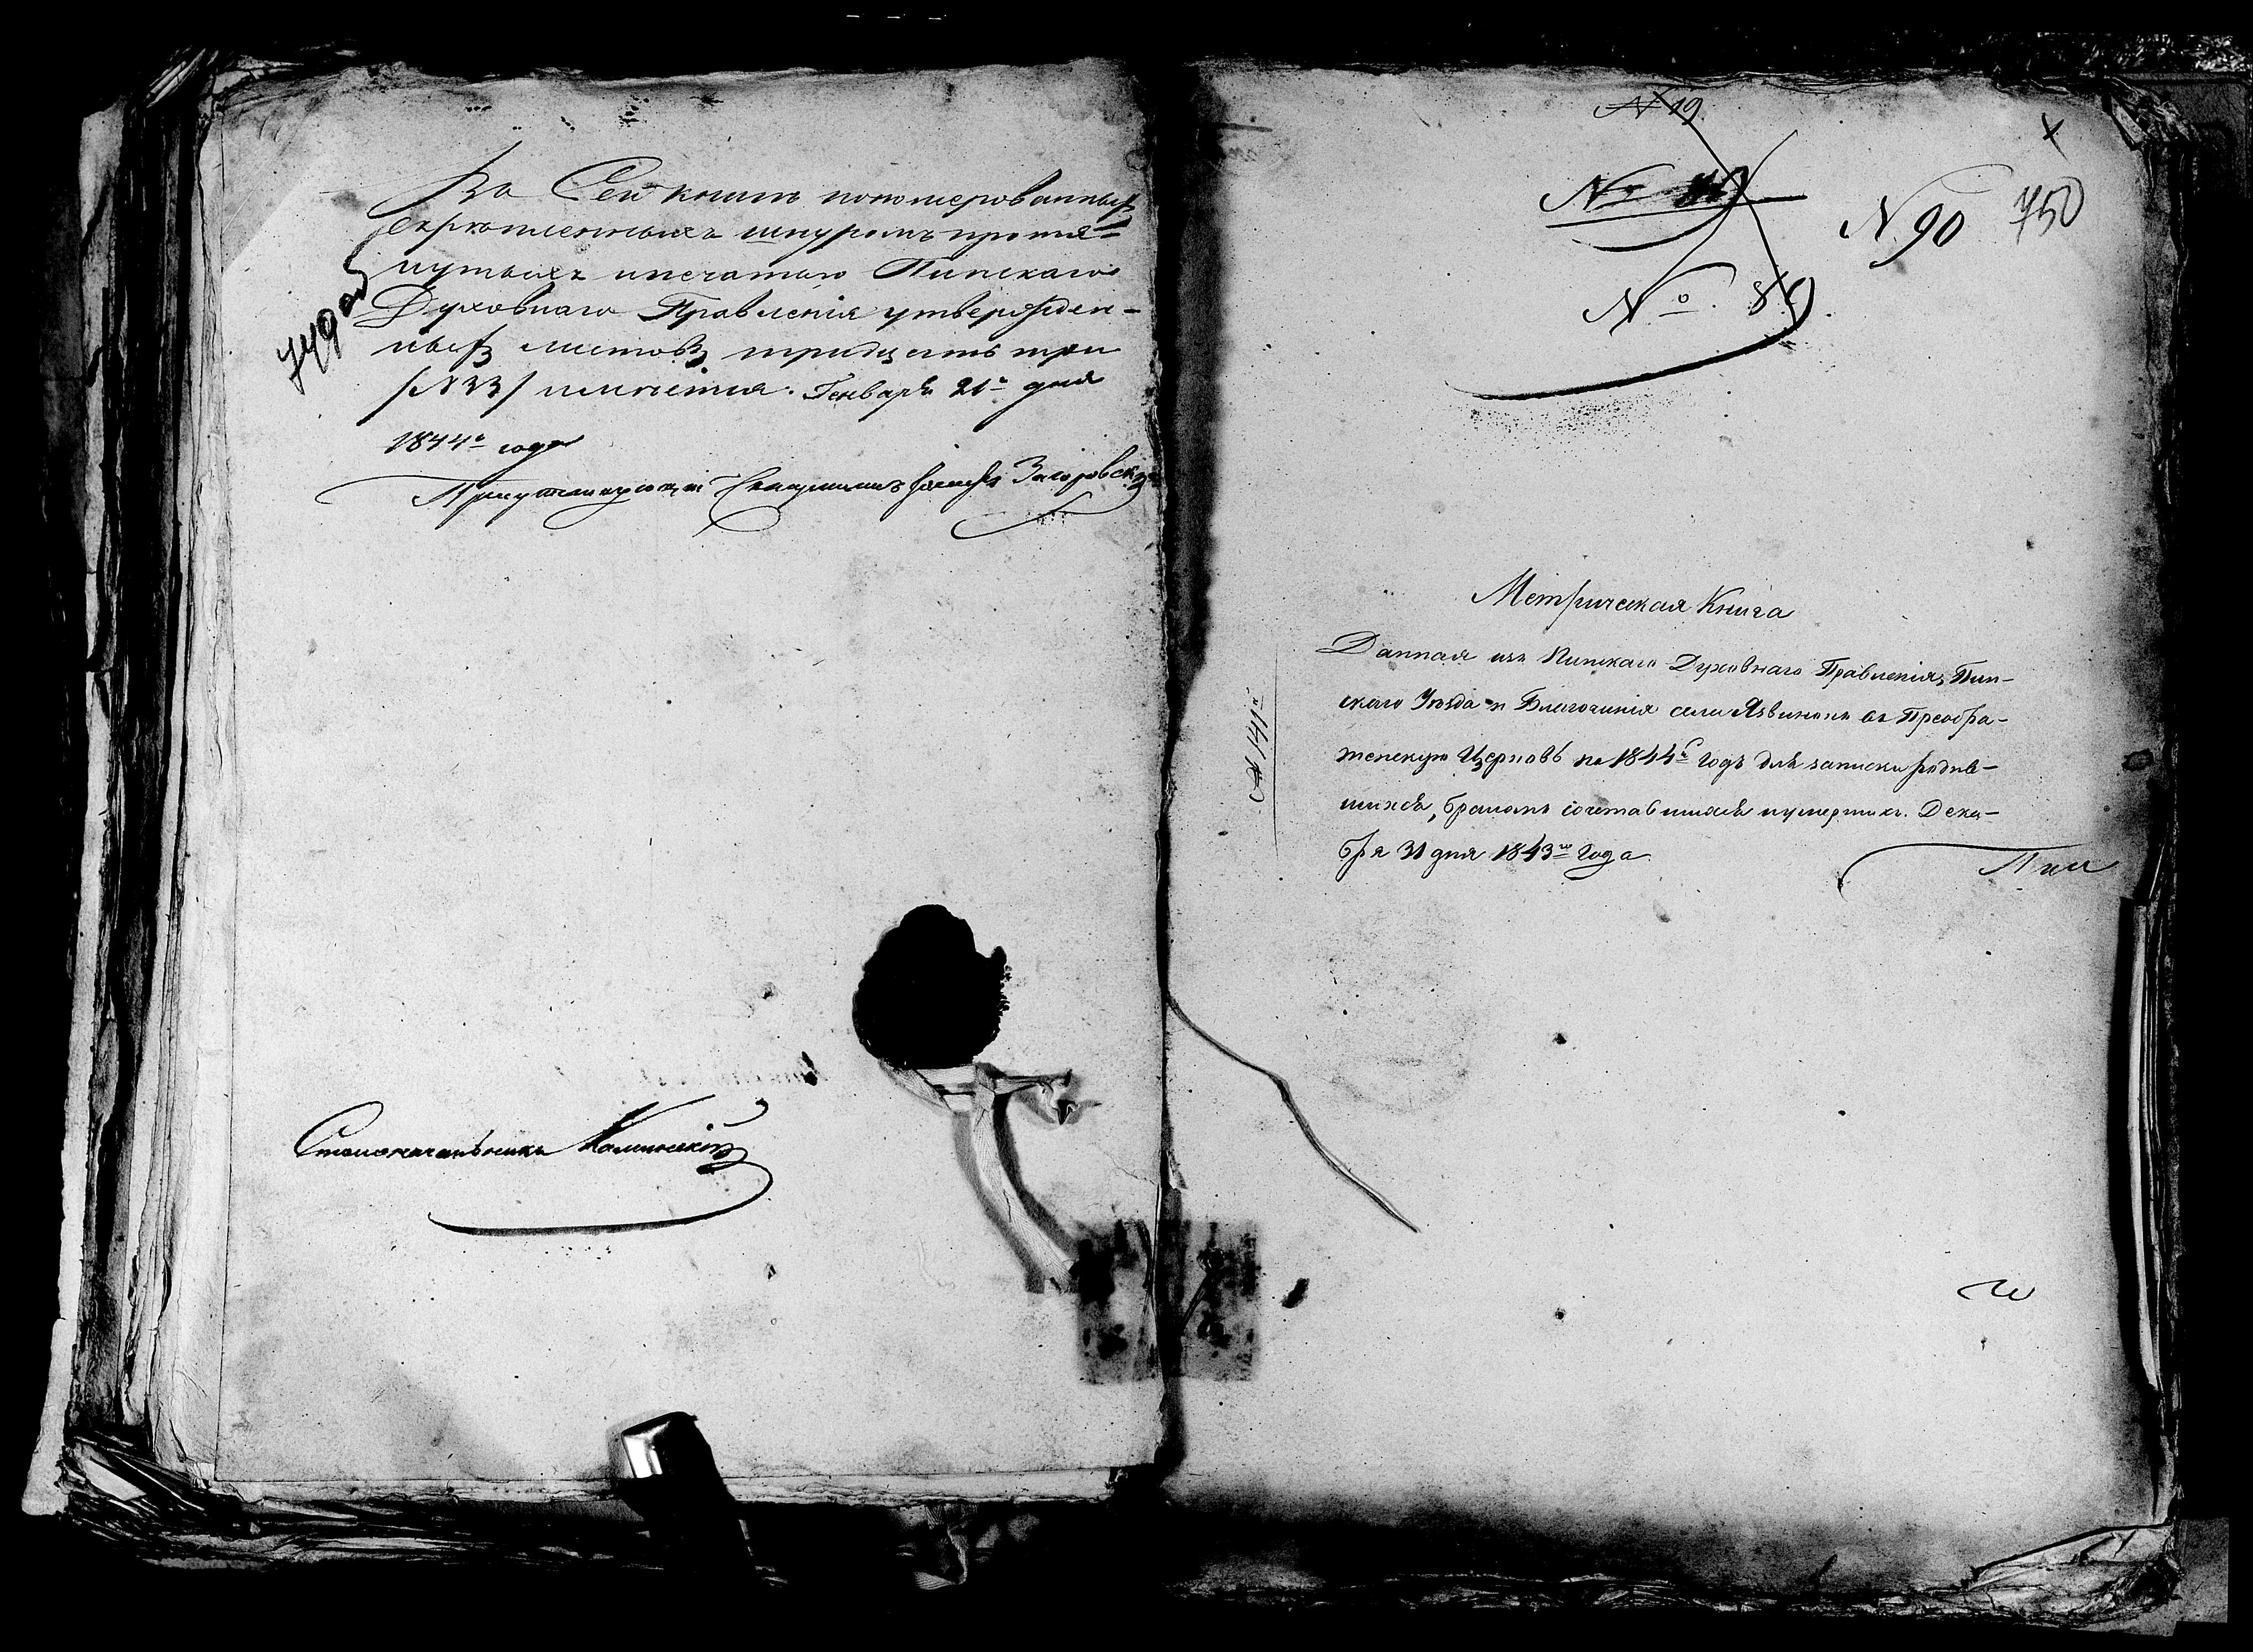 749 об
Въ Сей книгѣ пономерованныхъ
скрѣпленныхъ шнуромъ протя-
нутыхъ и печатью Пинскаго
Духовнаго Правленія утвержден-
ныхъ листовъ тридцать три
/№ 33/ имѣется. Генваря 21го дня
1844го года
Присутствующій Священникъ Загоровскій
Столоначальникъ Калинскій
№ 19
№
№ 90
750
№. 89.
№ 141й
Метрическая Книга
Данная изъ Пинскаго Духовнаго Правленія, Пин-
скаго Уѣзда и Благочинія села Язвинокъ въ Преобра-
женскую Церковь на 1844й Годъ для записки родив-
шихся, бракомъ сочетавшихся и умершихъ. Дека-
бря 31 дня 1843го Года.
Пин